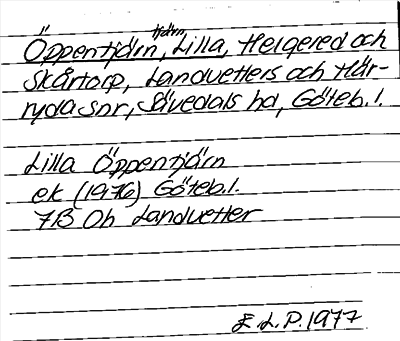 tjärn
Öppentjärn, Lilla, Helgered och
Skårtorp, Landvetters och Här-
ryda snr, Sävedals hd, Göteb. l.
Lilla Öppentjärn
ek (1976) Göteb. l.
7B 0h Landvetter
E L. P. 1977